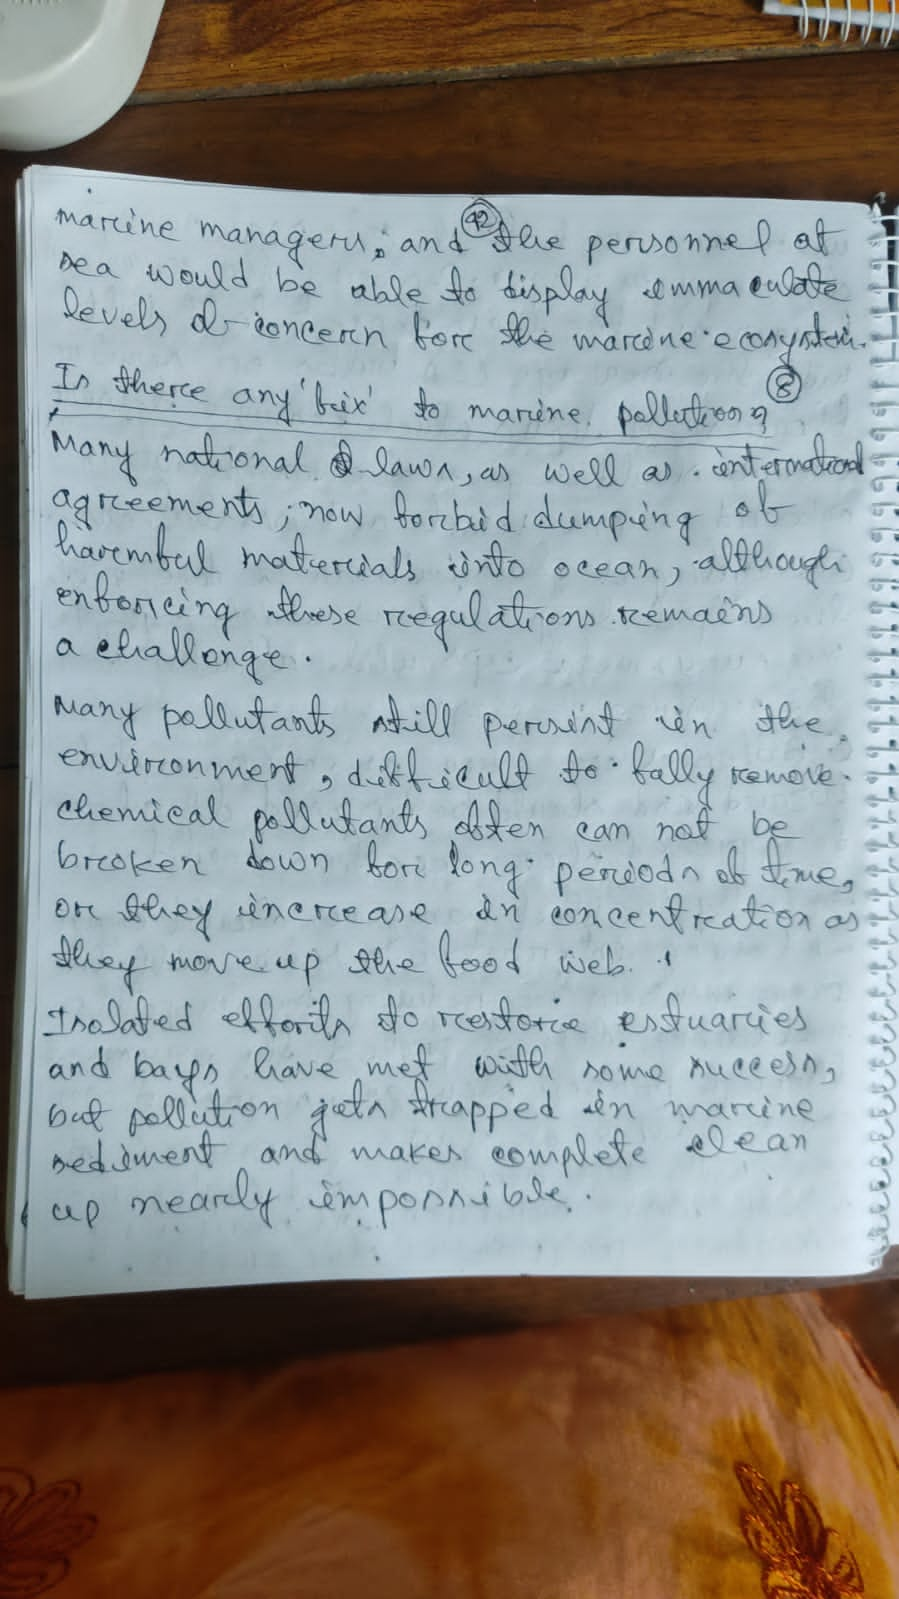 marine managers, and the personnel at
42
sea would be able to display immaculate
levels of concern for the marine ecosystem.
8
Is there any 'fix' to marine pollution?
Many national laws, as well as international
agreements, now forbid dumping of
harmful materials into ocean, although
enforcing these regulations remains
a challenge.
Many pollutants still persist in the
environment, difficult to fally remove.
chemical pollutants often can not be
broken down for long periods of time,
or they increase in concentration as
they move up the food web.
Isolated efforts to restore estuaries
and bays have met with some success,
but pollution gets trapped in marine
sediment and makes complete clean
up nearly impossible.